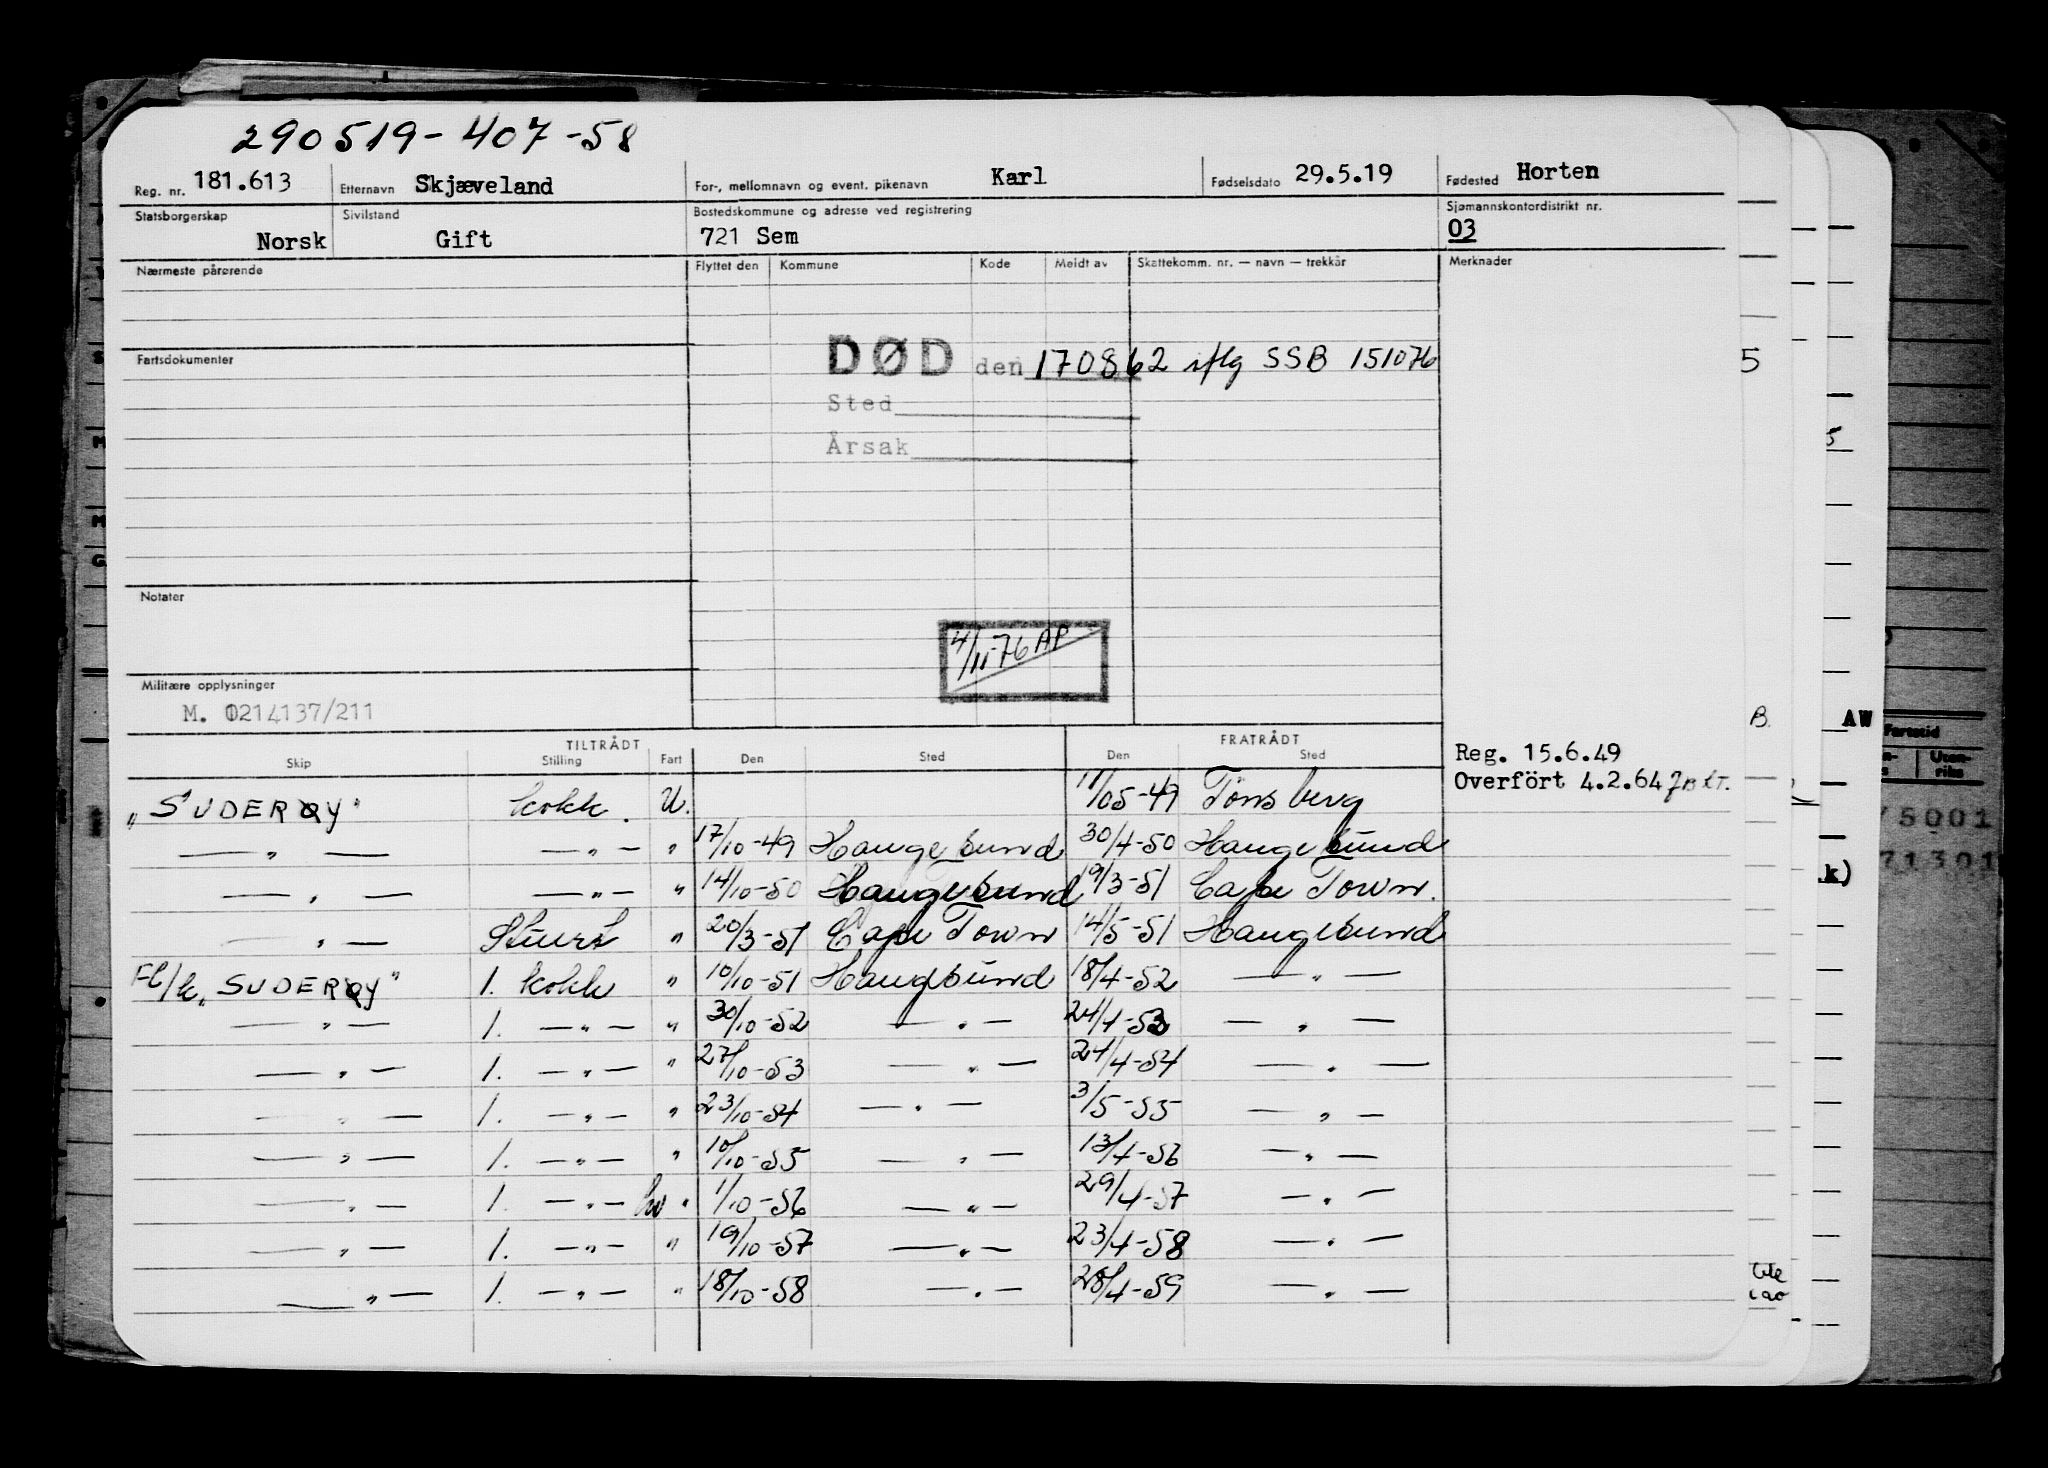 290519-407-58
Reg. nr. 181.613 Etternavn Skjæveland For-, mellomnavn og event. pikenavn Karl Fødselsdato 29.5.19 Fødested Horten
Statsborgerskap Sivilstand Bostedskommune og adresse ved registrering Sjømannskontordistrikt nr.
Norsk Gift 721 Sem 03
Nærmeste pårørende Flyttet den Kommune Kode Meldt av Skattekomm. nr. — navn — trekkår Merknader
Fartsdokumenter DØD den 170862 iflg SSB 151076
Sted
Årsak
Notater
4/11-76 AP
Militære opplysninger
M. 0214137/211
TILTRÅDT FRATRÅDT
Skip Stilling Fart Den Sted Den Sted
Reg. 15.6.49
Overført 4.2.64
"SUDERØY" kokk U. 11/05-49 Tönsberg
— " — — " — " 17/10-49 Haugesund 30/4-50 Haugesund
— " — — " — " 14/10-50 Haugesund 19/3-51 Cape Town.
— " — Stuert " 20/3-51 Cape Town 14/5-51 Haugesund
Fl/k "SUDERØY" 1. kokk " 10/10-51 Haugesund 18/4-52 — " —
— " — 1. — " — " 30/10-52 — " — 24/4-53 — " —
— " — 1. — " — " 27/10-53 — " — 24/4-54 — " —
— " — 1. — " — " 23/10-54 — " — 3/5-55 — " —
— " — 1. — " — " 10/10-55 — " — 13/4-56 — " —
— " — 1. — " — hv " 1/10-56 — " — 29/4-57 — " —
— " — 1. — " — " 19/10-57 — " — 23/4-58 — " —
— " — 1. — " — " 18/10-58 — " — 28/4-59 — " —
5
B.
AW
Fartstid
75001
71301
k)